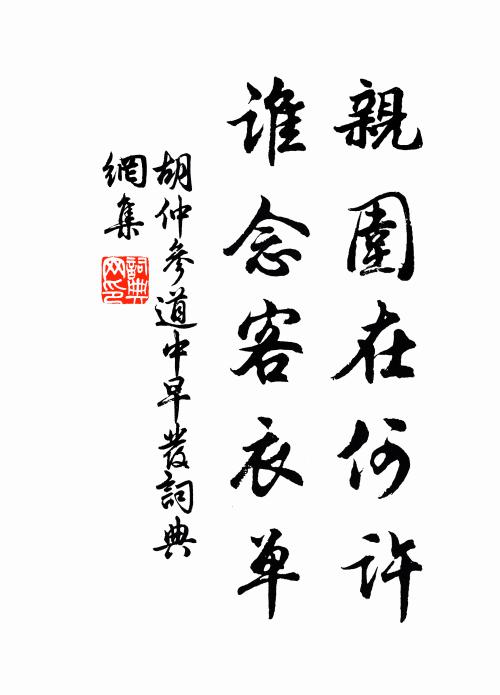 親圍在何許
誰念客衣單
胡仲參道中早發詞典
網集
詞典網印